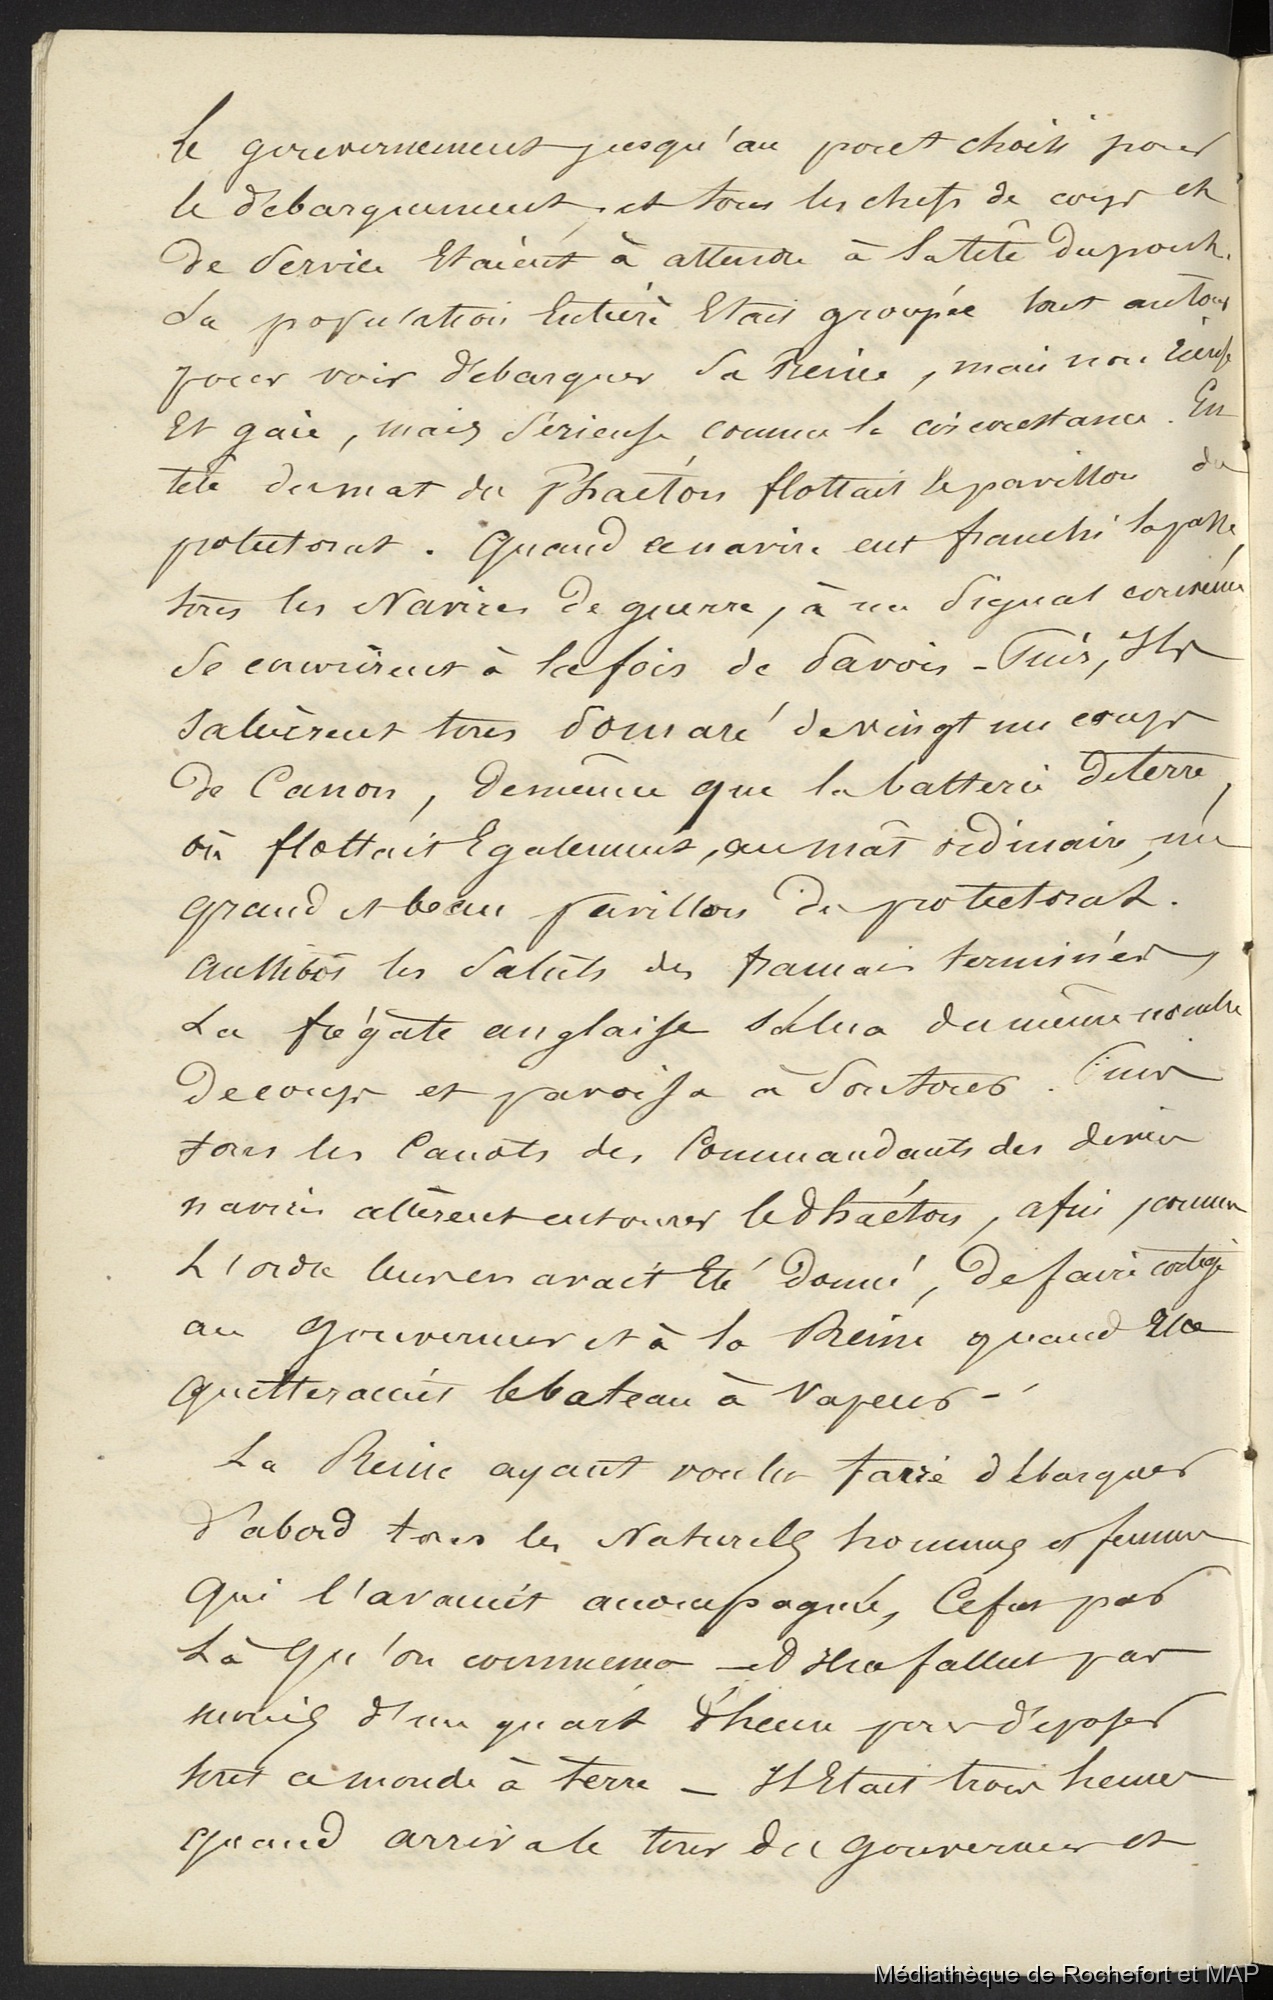 le gouvernement jusqu'au pont choisi pour
le débarquement, et tous les chefs de corps et
de service Etaient à attendre à la tête du pont.
La population Entière Etait groupée tout autour
pour voir débarquer sa Reine, mais non rieuse
Et gaie, mais sérieuse comme la circonstance. En
tête du mat du Phaéton flottait le pavillon du
protectorat. Quand ce navire eut franchi la passe,
tous les Navires de guerre, à un signal convenu
se couvrirent à la fois de pavois - Puis, Ils
saluèrent tous de vingt un coups
de Canon, de même que la batterie de terre,
où flottait Egalement, au mât ordinaire, un
grand et beau pavillon du protectorat.
Aussitôt les saluts des français terminés,
La frégate anglaise salua du même nombre
de coups et pavoisa à son tour. Puis
tous les Canots des Commandants des divers
navires allèrent entourer le Phaéton, afin comme
L'ordre leur en avait Eté donné, de faire cortège
au Gouverneur et à la Reine quand Ils
quitteraient le bateau à vapeur -
La Reine ayant voulu faire débarquer
d'abord tous les Naturels hommes et femmes
qui l'avaient accompagnée, Ce fut par
Là qu'on commença - et Il ne fallut pas
moins d'un quart d'heure pour déposer
tout ce monde à terre - Il Etait trois heures
quand arriva le tour du Gouverneur et
Médiathèque de Rochefort et MAP